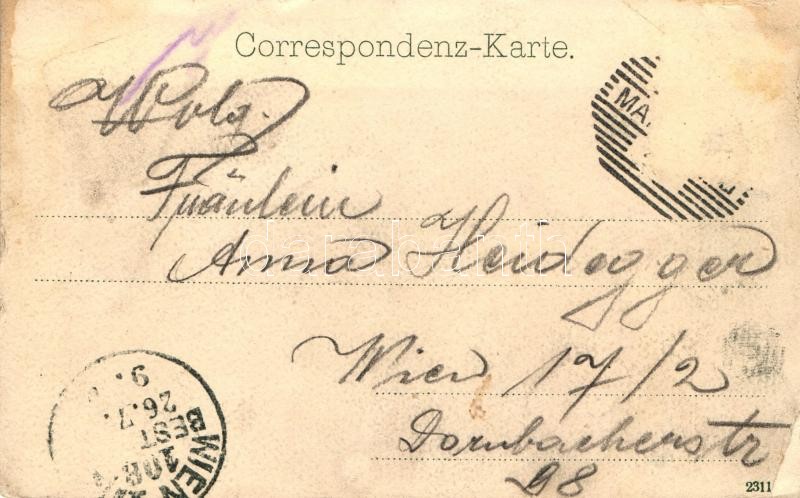 Correspondenz-Karte.
MA
Wolg.
Fräulein
Anna Heidegger
Wien 17/2
Dornbacherstr
98
WIEN
BEST
26.7.
9.
2311